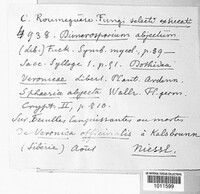 C. Roumeguère. Fungi selecti exsiccati
4938. Dimerosporium abjectum
(Lib.) Fuck. Symb. mycol., p. 89 —
Sacc. Sylloge 1. p. 51. Dothidea
Veronicae Libert. Plant. Arduenn.
Sphaeria abjecta Wallr. Fl. germ.
Crypt. II, p. 810.
Sur feuilles languissantes ou mortes
De Veronica officinalis à Kalsbrunn
(Silésie) Août Niessl.
1011599